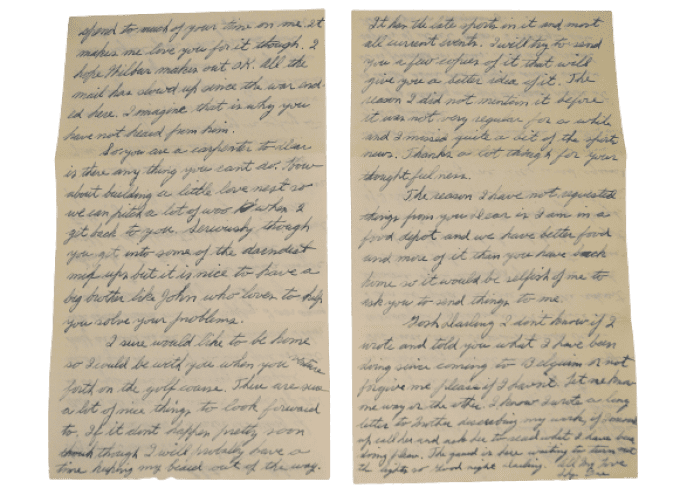 spend to much of your time on me. It
makes me love you for it though. I
hope Wilbur makes out OK. all the
mail has slowed up since the war end-
ed here. I imagine that is why you
have not heard from him.
So you are a carpenter to dear
is there any thing you cant do. How
about building a little love nest so
we can pitch a lot of woo when I
get back to you. Seriously though
you get into some of the darndest
mix ups but it is nice to have a
big brother like John who loves to help
you solve your problems.
I sure would like to be home
so I would be with you when you
forth on the golf course. There are sure
a lot of nice things to look forward
to. If it dont happen pretty soon
though I will probably have a
time keeping my beard out of the way.
It has the late sports in it and most
all current events. I will try to send
you a few copies of it that will
give you a better idea of it. The
reason I did not mention it before
it was not very regular for a while
and I missed quite a bit of the sport
news. Thanks a lot though for your
thoughtfulness.
The reason I have not requested
things from you dear is I am in a
food depot and we have better food
and more of it than you have back
home so it would be selfish of me to
ask you to send things to me.
Gosh darling I dont know if I
wrote and told you what I have been
doing since coming to Belgium or not
forgive me please if I havnt. Let me know
one way or the other. I know I wrote a long
letter to Mother describing my work, if
up call her and ask her to read what I have been
doing please. The guard is here waiting to turn out
the lights so Good night darling. All My Love